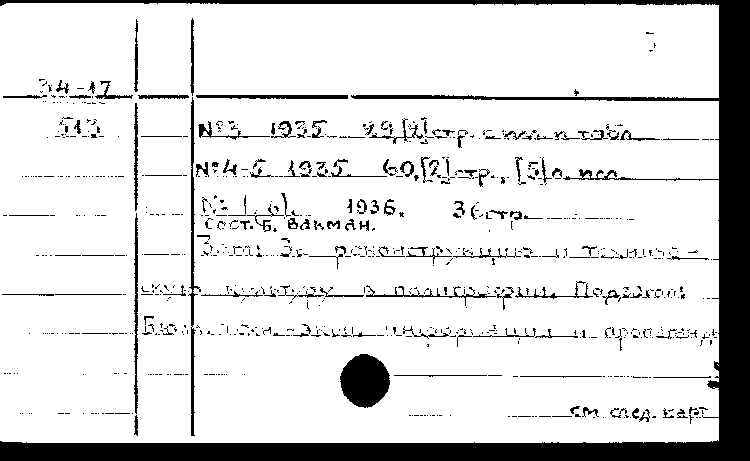 5
34-17
513
№3 1935 29,[2]стр. с илл. и табл.
№4-5 1935. 60,[2]стр., [5]л. илл.
№ 1(6). 1936. 36стр.
сост. Б. Вакман.
Загл: За реконструкцию и техниче-
скую культуру в полиграфии. Подзагол:
Бюлл. техн.-экон. информации и пропаганд
см след. карт